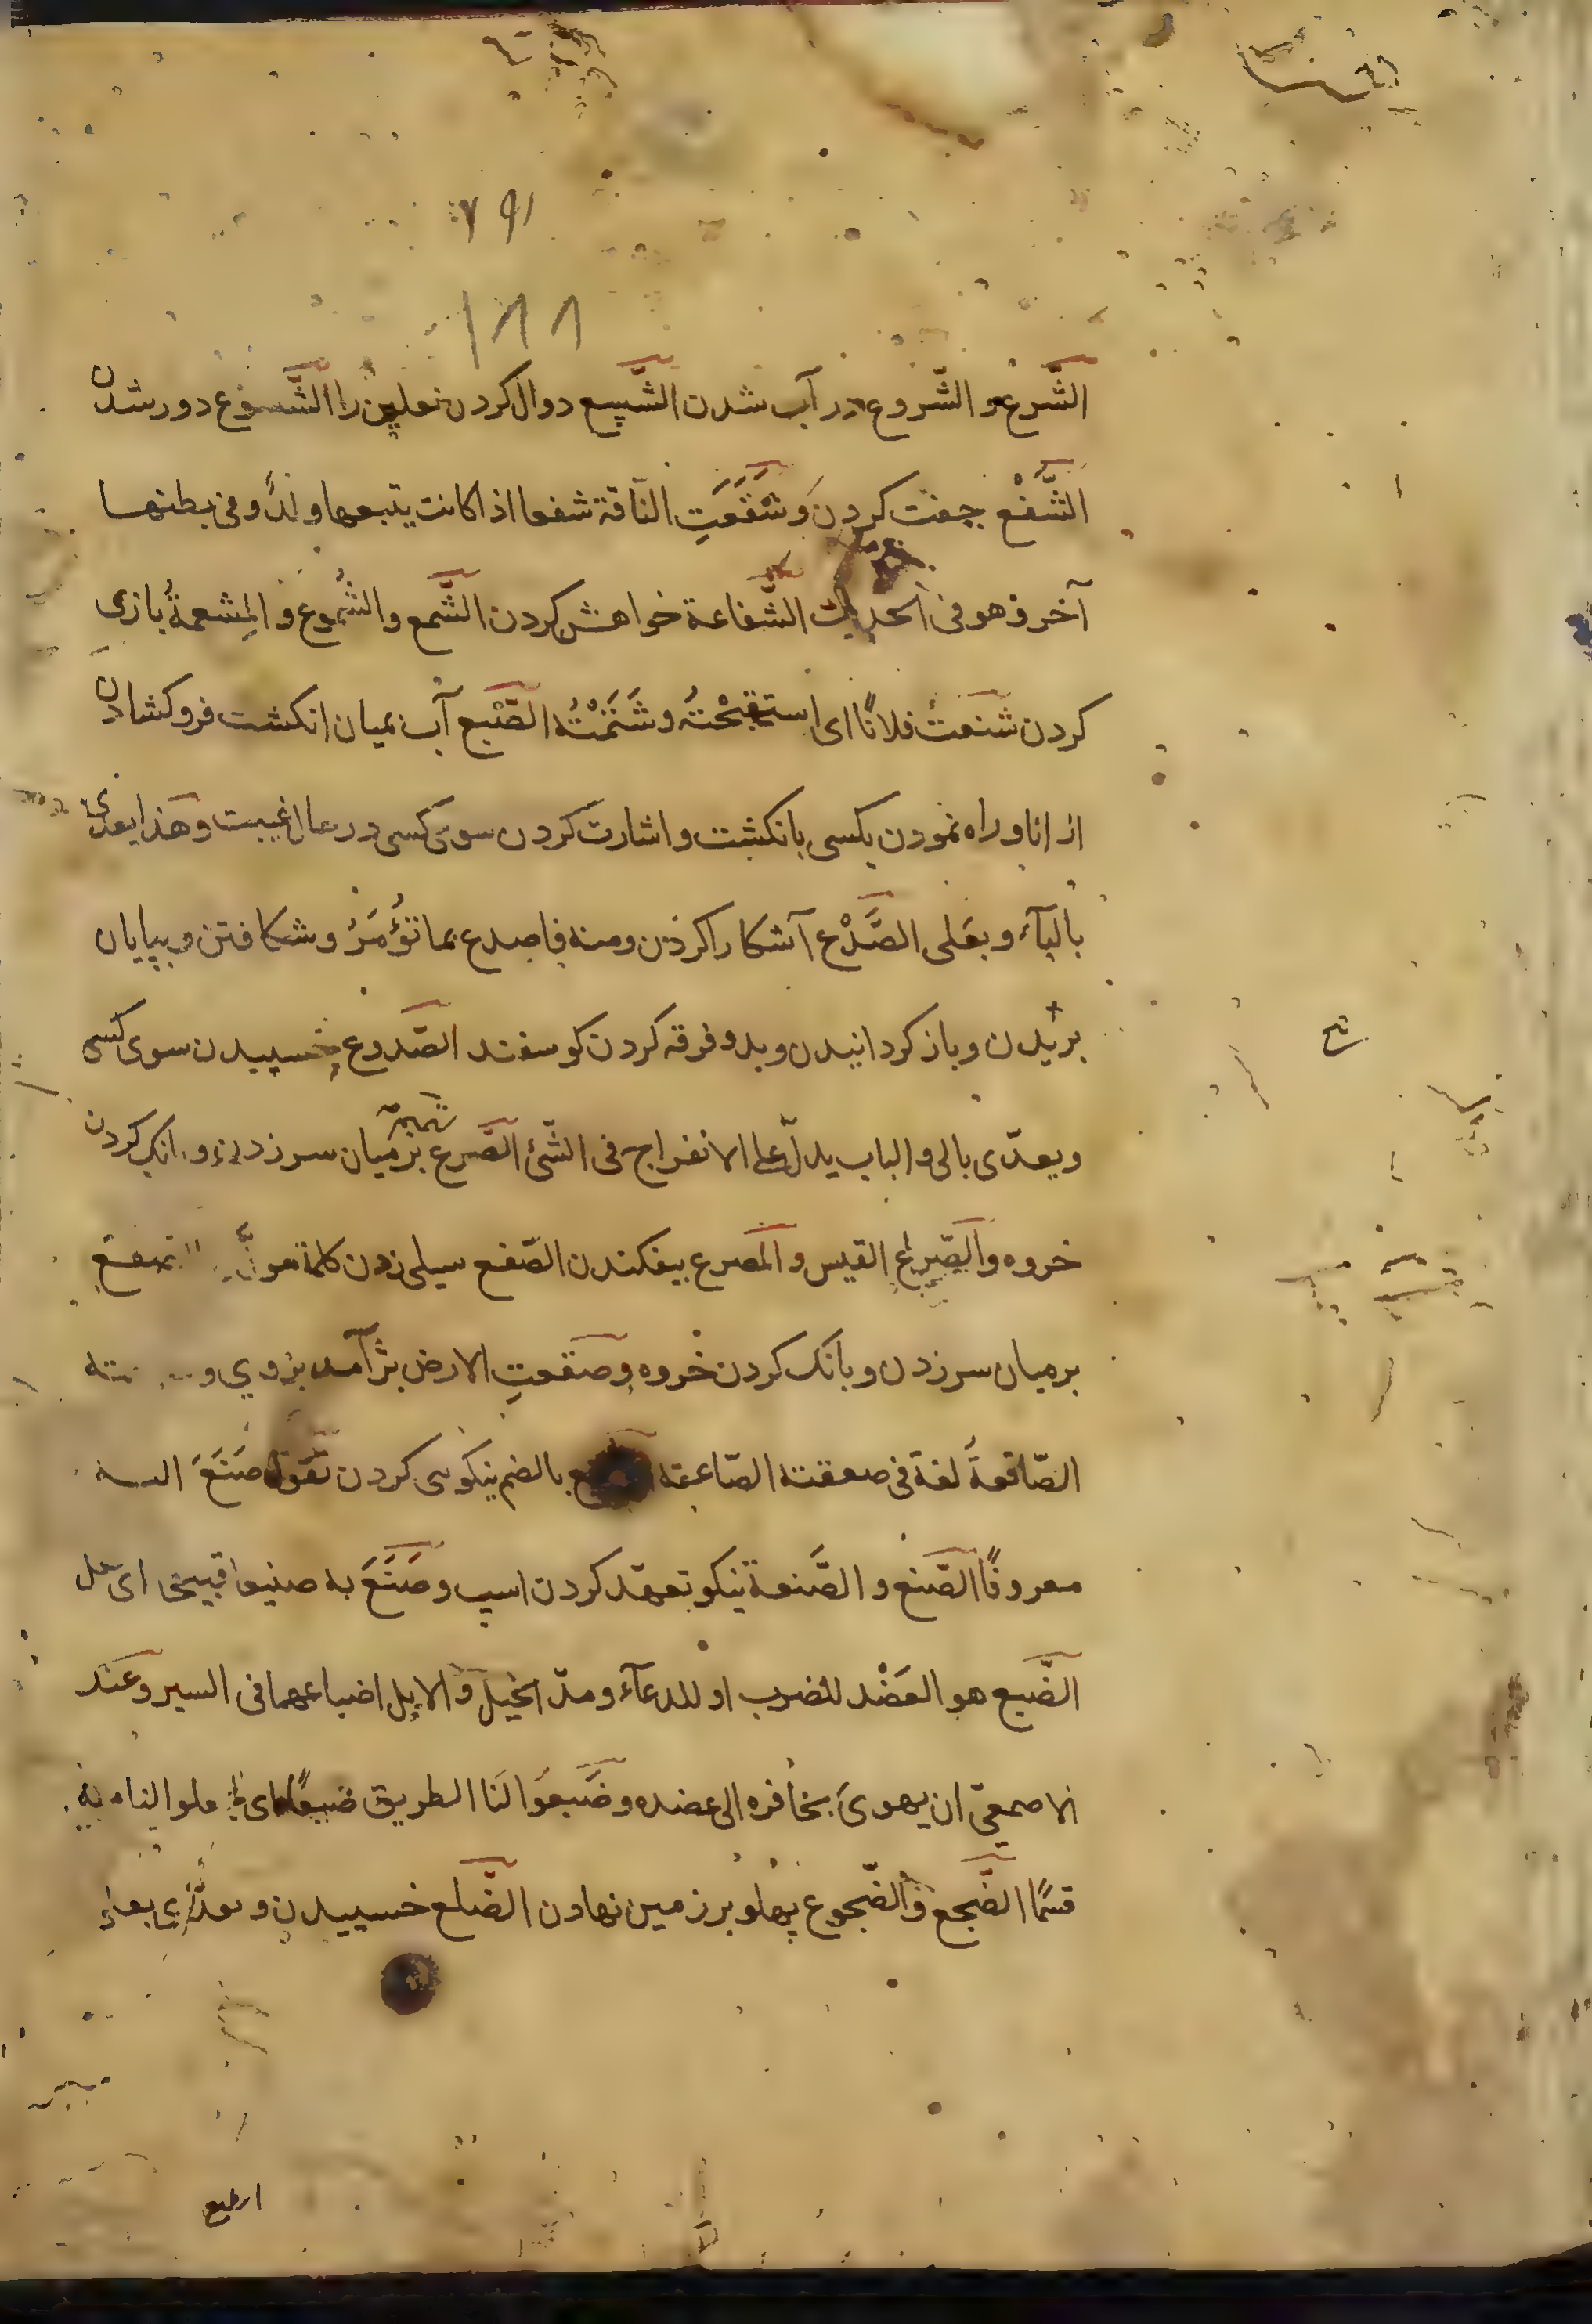 ۱۸۸
الشَّرع و الشّروع در آب شدن الشَّسِع دوال کردن نعلین را الشُّسوع دور شدن
الشَّفْع جفت کردن وَشَفَعَتِ النّاقة شفعا اذا کانت یتبعها ولدٌ و فی بطنها
آخر و هو فی الحدیث الشّفاعة خواهش کردن الشَّمع و الشُّموع و المِشمعةُ بازی
کردن شنعتُ فلانًا ای استقبحْتهُ و شَتَمْتُهُ الصَّبْع آب بمیان انکشت فرو کشادن
از انا و راه نمودن بکسی بانکشت و اشارت کردن سوی کسی در حال غیبت و هذا یعدّی
بالبآء و بعَلی الصَّدْع آشکارا کردن و منه فاصدع بما تؤْمَرُ و شکافتن و ببیابان
بریدن و باز کردانیدن و بدو فرقه کردن کوسفند الصّدوع خسپیدن سوی کسی
و یعدّی بالی و الباب یدلّ علی الانفراج فی الشّئ الصَّرع بر میان سر زدن و بانک کردن
خروه و الصَّرع القیس و المَصرع بیفکندن الصّفع سیلی زدن کلمة مولّدة الصقع
بر میان سر زدن و بانک کردن خروه و صقعتِ الارض بژ آمد بزوی و
الصّاقعةُ لغة فی صعقته الصّاعقه بالضم نیکویی کردن تقول صَنَعَ الیه
معروفًا الصّنع و الصَّنعة نیکو تعهّد کردن اسپ و صَنَعَ به صنیعا قبیحا ای فعل
الضّبع هو العَضْد للضرب او للدعآء و مدّ الخیل و الابل اضباعهما فی السیر و عند
الاصمعیّ ان یهویَ بحافره الی عضده و ضَبعوَا لَنَا الطریق ضبعًا ای جعلوا لنا منه
قسمًا الضَّجع و الضّجوع پهلو بر زمین نهادن الضَّلع خسپیدن و یعدّی بعلی